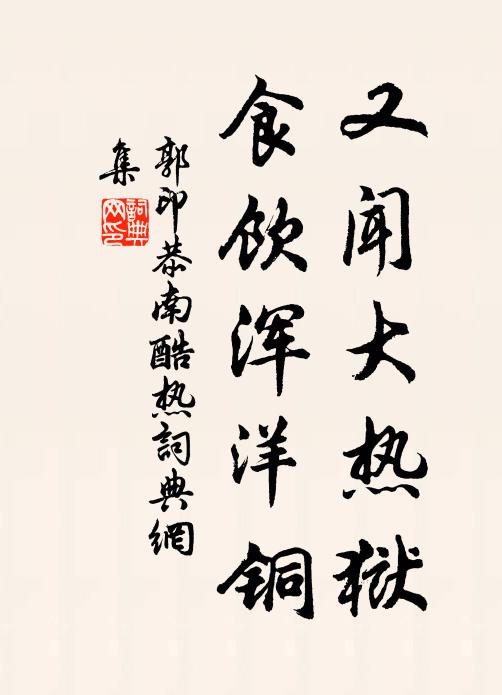 又闻大热狱
食饮浑洋铜
郭印恭南酷热詞典網
集
詞典網印